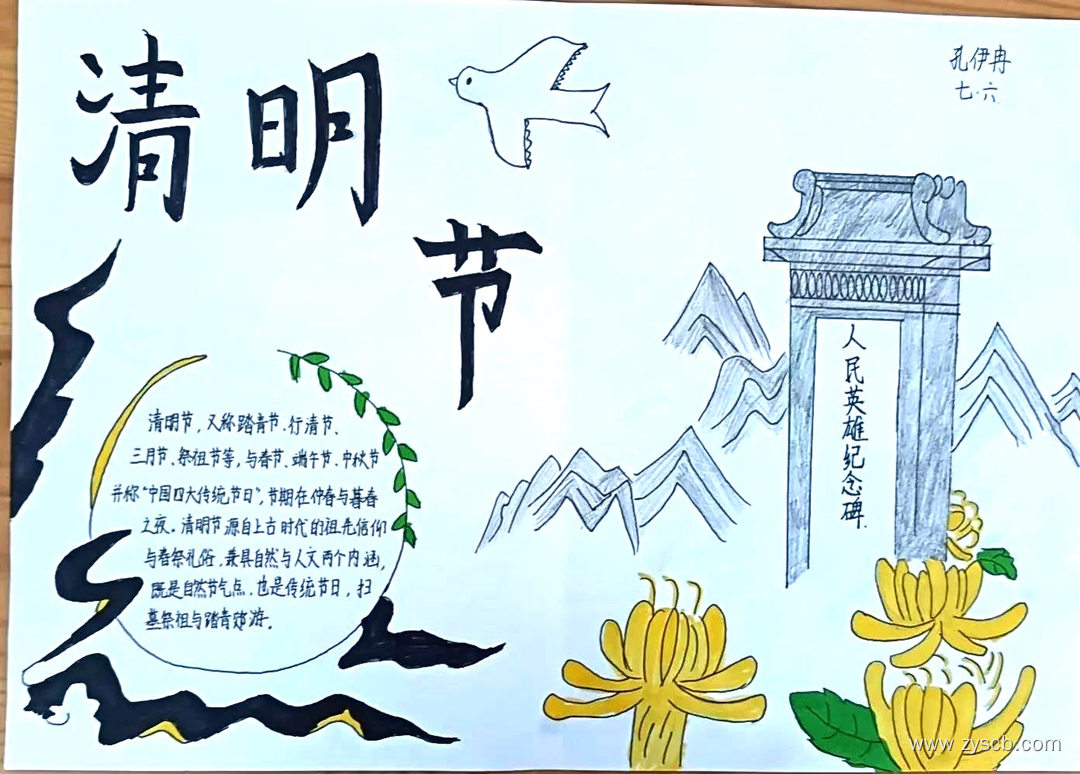 清明节
孔伊冉
七·六
清明节，又称踏青节、行清节、
三月节、祭祖节等，与春节、端午节、中秋节
并称“中国四大传统节日”，节期在仲春与暮春
之夜。清明节源自上古时代的祖先信仰
与春祭礼俗，兼具自然与人文两个内涵，
既是自然节气点，也是传统节日，扫
墓祭祖与踏青游。
人民英雄纪念碑
www.zyscb.com